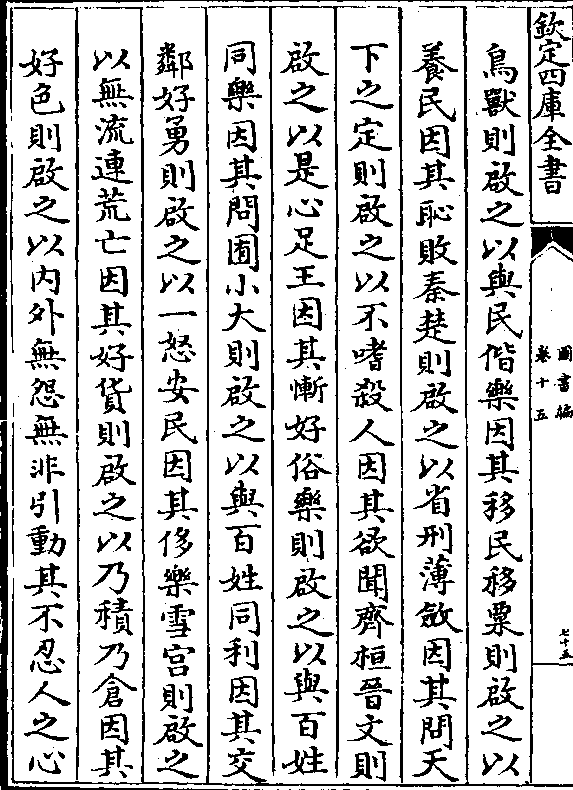 欽定四庫全書
圖書編
卷十五
七十五
鳥獸則啟之以與民偕樂因其移民移粟則啟之以
養民因其恥敗秦楚則啟之以省刑薄斂因其問天
下之定則啟之以不嗜殺人因其欲聞齊桓晉文則
啟之以是心足王因其慚好俗樂則啟之以與百姓
同樂因其問囿小大則啟之以與百姓同利因其交
鄰好勇則啟之以一怒安民因其侈樂雪宮則啟之
以無流連荒亡因其好貨則啟之以乃積乃倉因其
好色則啟之以內外無怨無非引動其不忍人之心